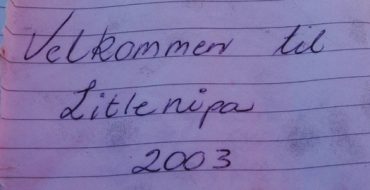 Velkommen til
Litlenipa
2003